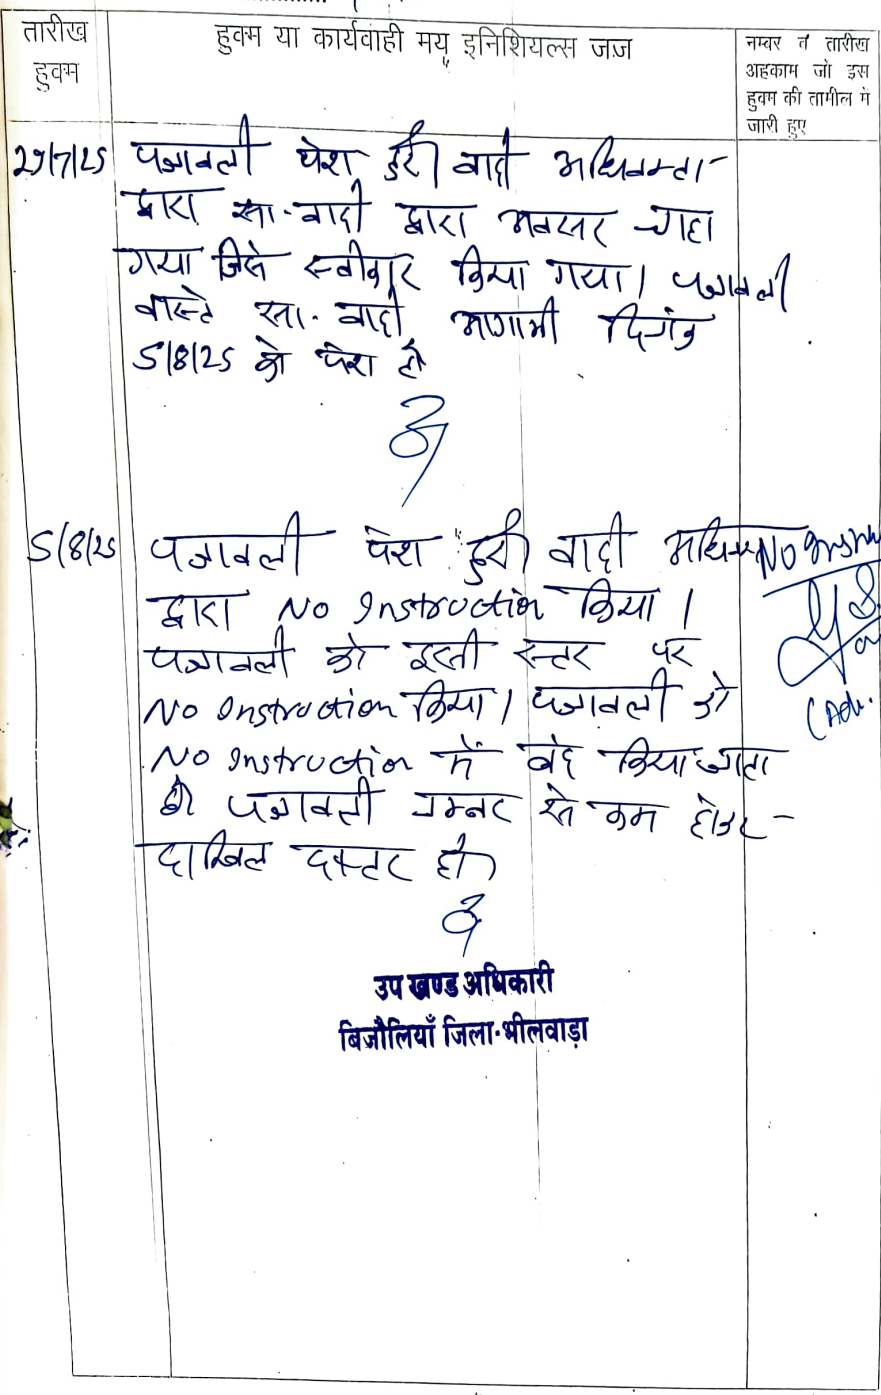 तारीख
हुक्म
हुक्म या कार्यवाही मय इनिशियल्स जज
नम्बर व तारीख
अहकाम जो इस
हुक्म की तामील में
जारी हुए
29/7/25 पत्रावली पेश हुई। वादी अधिवक्ता
द्वारा सा. वादी द्वारा अवसर चाहा
गया जिसे स्वीकार किया गया। पत्रावली
वास्ते सा. वादी आगामी दिनांक
5/8/25 को पेश हो
5/8/25 पत्रावली पेश हुई। वादी
द्वारा No Instruction किया।
पत्रावली को इसी स्तर पर
No Instruction किया। पत्रावली को
No Instruction में बंद किया जाता
है पत्रावली नम्बर से कम होकर
दाखिल दफ्तर हो
No
(Adv.
उप खण्ड अधिकारी
बिजौलियाँ जिला-भीलवाड़ा